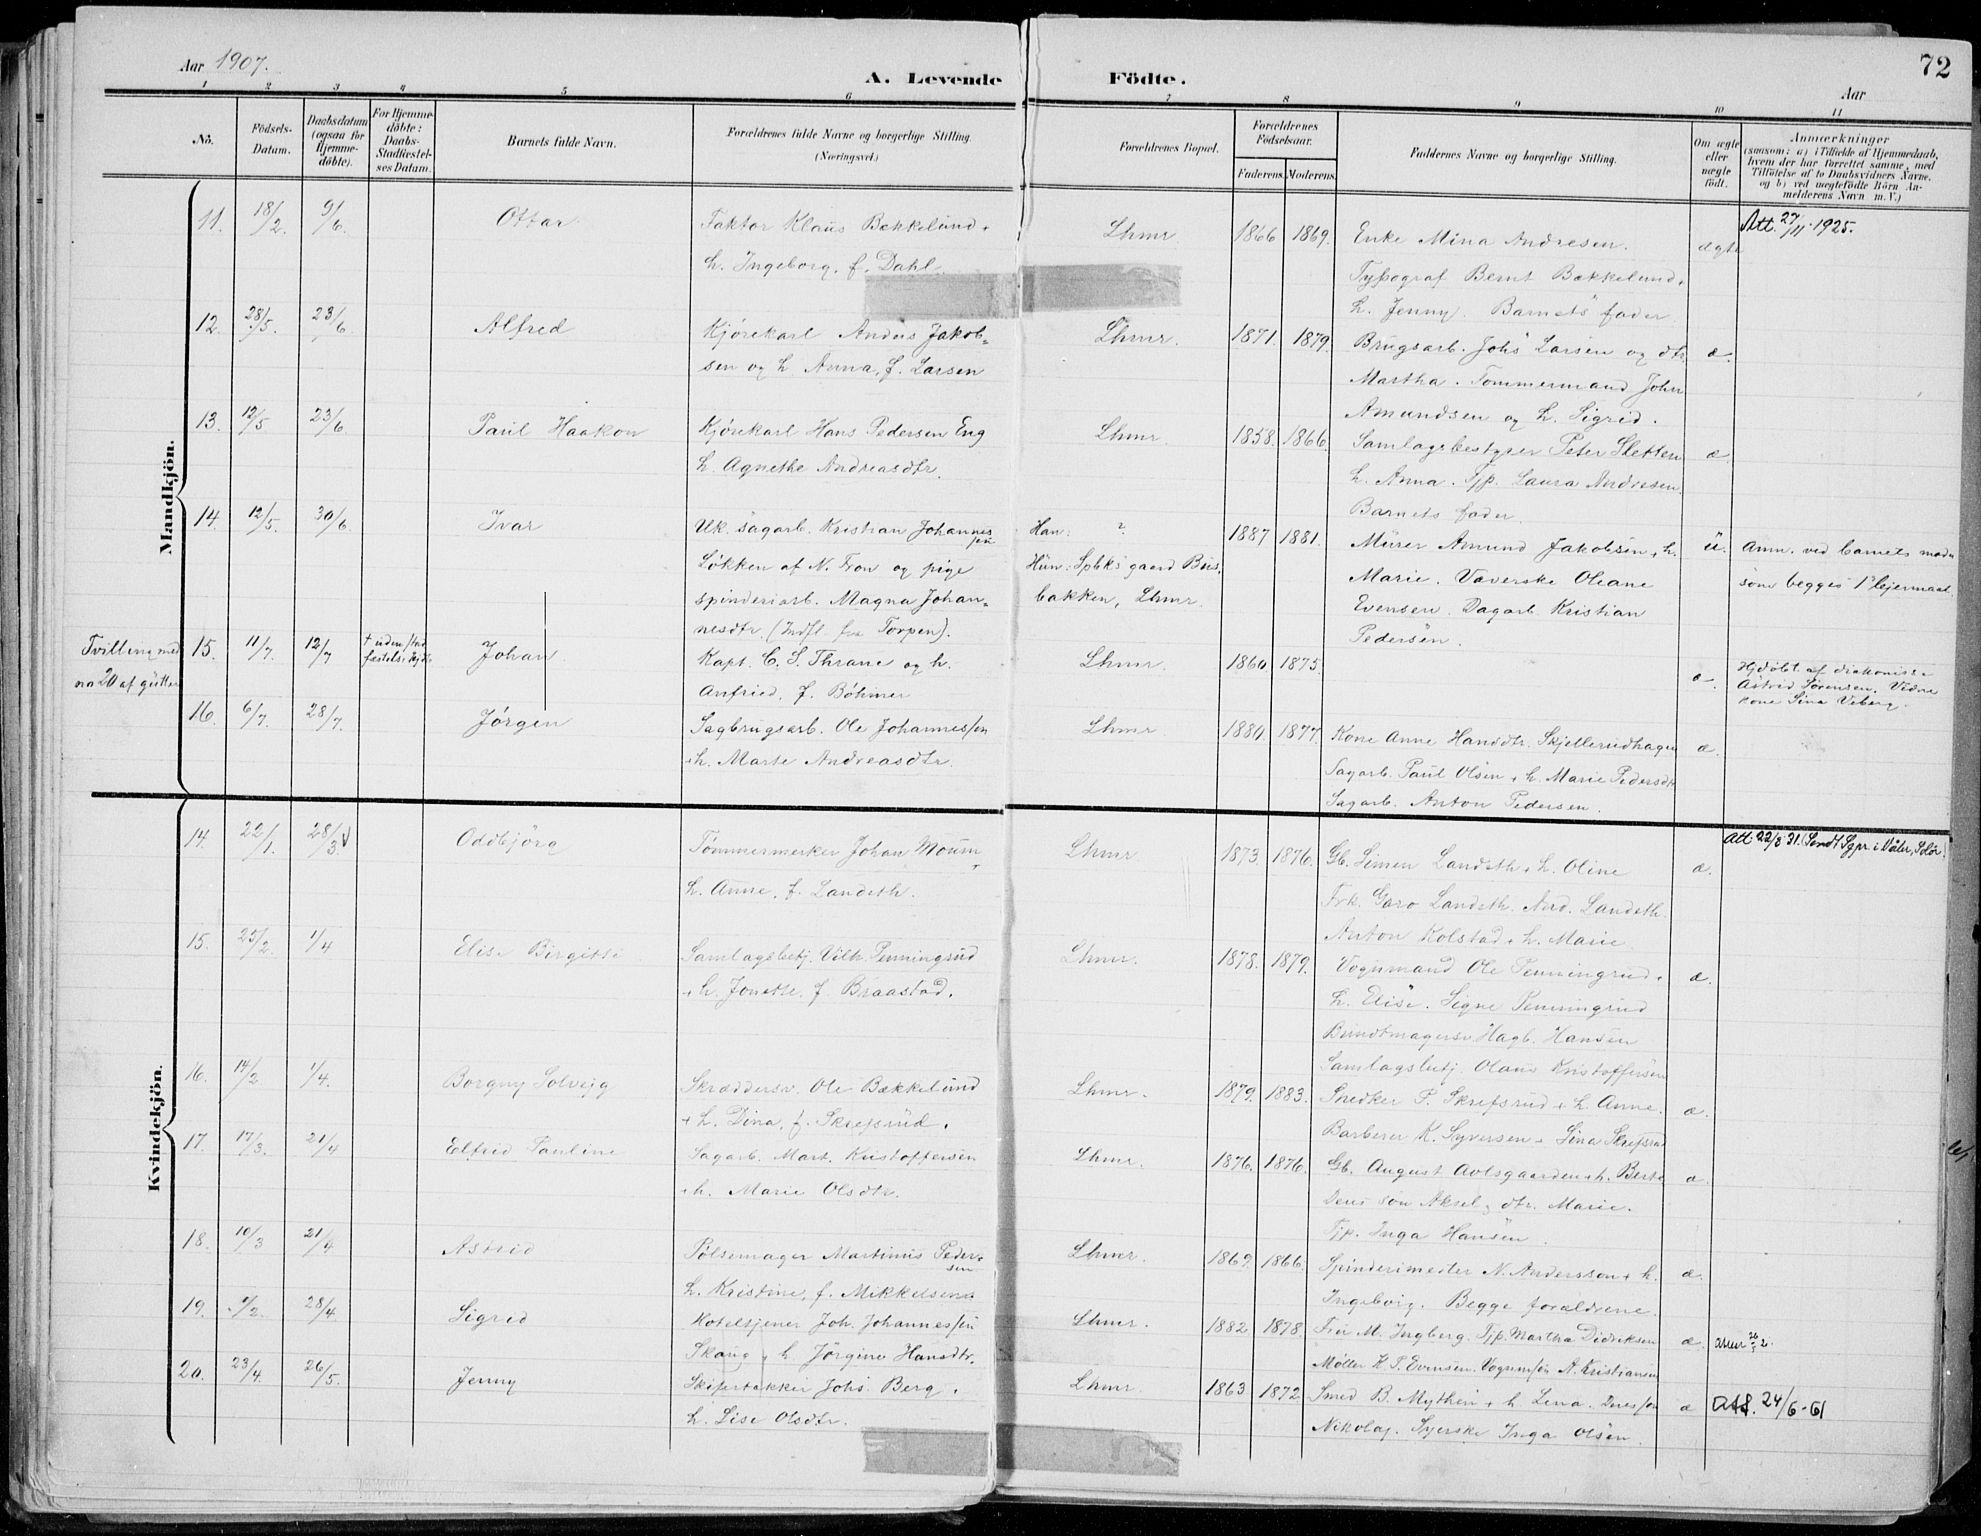 Aar 1907.
A. Levende Födte.
72
Aar
1 2 3 4 5 6 7 8 9 10 11
No.
Födsels-Datum.
Daabsdatum (ogsaa for Hjemmedöbte).
For Hjemmedöbte: Daabs-Stadfæstelses Datum.
Barnets fulde Navn.
Forældrenes fulde Navne og borgerlige Stilling. (Næringsvei.)
Forældrenes Bopæl.
Forældrenes Födselsaar.
Faderens. Moderens.
Faddernes Navne og borgerlige Stilling.
Om ægte eller uægte födt.
Anmærkninger
(saasom: a) i Tilfælde af Hjemmedaab, hvem der har forrettet samme, med Tilföielse af to Daabsvidners Navne, og b) ved uægtefödte Börn Anmelderens Navn m.V.)
Mandkjön.
11. 18/2. 9/6. Ottar
Faktor Klaus Bækkelund +
h. Ingeborg, f. Dahl.
Lhmr 1866 1869.
Enke Mina Andresen.
Typograf Bernt Bækkelund +
h. Jenny. Barnets fader.
ægte
Att. 27/11 1925.
12. 28/5. 23/6. Alfred
Kjørekarl Anders Jakob=
sen og h Anna, f. Larsen
Lhmr. 1871. 1879.
Brugsarb. Johs Larsen og dtr.
Martha. Tømmermand John
Amundsen og h. Sigrid.
æ.
13. 12/5 23/6. Paul Haakon
Kjørekarl Hans Pedersen Eng
h. Agnethe Andreasdtr.
Lhmr. 1858. 1866.
Samlagsbestyrer Peter Sletten
h. Anna. Tjp. Laura Andresen.
Barnets fader.
æ.
14. 12/5. 30/6. Ivar
Uk. sagarb. Kristian Johannessen
Løkken af N. Fron og pige
spinderiarb. Magna Johan=
nesdtr. (Indfl. fra Torpen).
Han: ?
Hun:
bakken, Lhmr.
1887 1881.
Murer Amund Jakobsen + h.
Marie. Væverske Oleane
Evensen. Dagarb. Kristian
Pedersen.
u.
Anm. ved barnets moder
som begges 1ste lejermaal
Tvilling med
no 20 af gutter
15. 11/7. 12/7 Johan
Kapt. C. S. Thrane og h.
Anfried, f. Böhmer
Lhmr. 1860 1875.
æ.
Hjdøbt af diakonisse
Astrid Sørensen. Vidne
kone Lina Viberg.
16. 6/7. 28/7. Jørgen
Sagbrugsarb. Ole Johannessen
+ h. Marte Andreasdtr.
Lhmr. 1880. 1877.
Kone Anne Hansdtr. Skjellerudhagen
Sagarb. Paul Olsen + h. Marie Pedersdtr
Sagarb. Anton Pedersen.
æ.
Kvindekjön.
14. 22/1. 28/3. Oddbjörg
Tømmermerker Johan Moum +
h. Anne, f. Landeth.
Lhmr. 1873. 1876.
Gb. Simen Landeth + h. Oline
Frk. Garo Landeth. Nerd. Landeth.
Anton Kolstad + h. Marie
æ.
Att. 22/8 31. (Sendt Sgpr. i Våler, Solør.
15. 25/2. 1/4 Elise Birgitte
Samlagsbetj. Vilh. Penningsrud
+ h. Jonette, f. Braastad.
Lhmr. 1878. 1879.
Vognmand Ole Penningrud +
h. Elise. Signe Penningrud
Bundtmagersv. Hagb. Hansen
Samlagsbetj. Olaus Kristoffersen
æ.
16. 14/2 1/4. Borgny Solvejg
Skræddersv. Ole Bækkelund
+ h. Dina, f. Skrefsrud.
Lhmr. 1879. 1883.
Snedker P. Skrefsrud + h. Anne.
Barberer K. Syversen + Lina Skrefsrud
æ.
17. 17/3. 21/4 Elfrid Pauline
Sagarb. Mart. Kristoffersen
+ h. Marie Olsdtr.
Lhmr. 1876. 1876.
Gb. August Aolsgaarden + h. Berte
Deres søn Aksel, dtr. Marie.
Tjp. Inga Hansen.
æ.
18. 10/3 21/4. Astrid
Pølsemager Martinius Pedersen
h. Kristine, f. Mikkelsen
Lhmr. 1869. 1866.
Spinderimester N. Andersson + h.
Ingeborg. Begge forældrene.
æ.
19. 28/4. Sigrid
Hoteltjener Joh. Johannessen
Skaug + h Jørgine Hansdtr.
Lhmr. 1882 1878.
Fru M. Ingberg. Tjp. Martha Didriksen
Møller H. P. Evensen. Vognmsøn A. Kristiansen
æ.
20. 23/4. 26/5. Jenny
Skifertækker Johs. Berg +
h. Lise Olsdtr.
Lhmr. 1863 1872
Smed B. Mythen + h Lina. Deres søn
Nikolaj. Syerske Inga Olsen.
æ
Att. 24/6-61